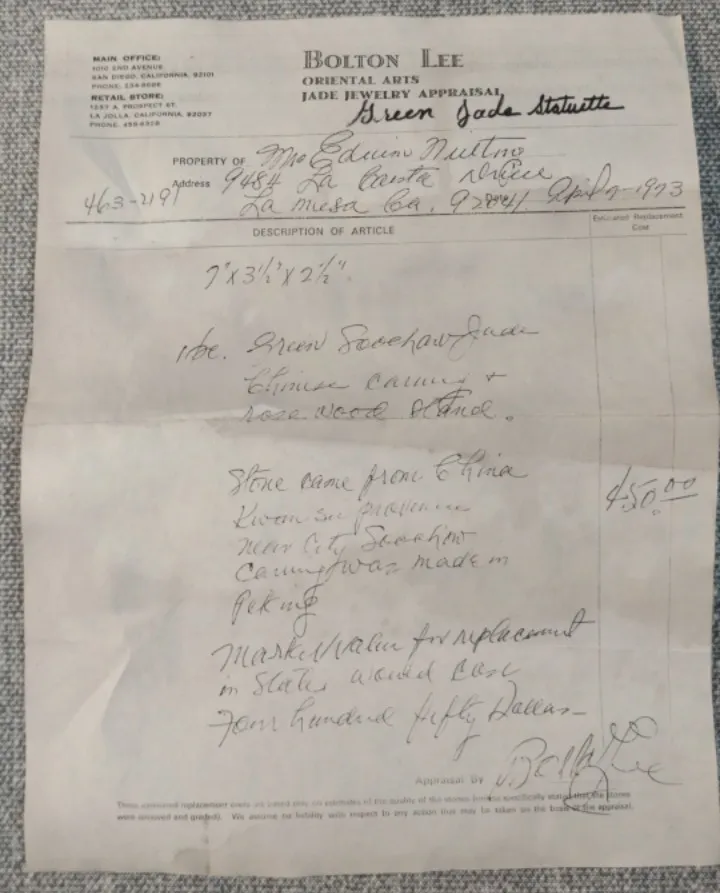 MAIN OFFICE:
1010 2ND AVENUE
SAN DIEGO, CALIFORNIA, 92101
PHONE: 234-
RETAIL STORE:
1237 A. PROSPECT ST.
LA JOLLA, CALIFORNIA, 92037
PHONE.
BOLTON LEE
ORIENTAL ARTS
JADE JEWELRY APPRAISAL
Green Jade Statuette
PROPERTY OF Mrs Edwin
Address 9484 La Drive
463-2191 La Mesa Ca. 92041 April 1973
DESCRIPTION OF ARTICLE
Estimated Replacement
Cost
7" x 3 1/2" x 2 1/2".
1 pc. Green Soochow Jade
Chinese carving +
rose wood stand.
Stone came from China
province
near City Soochow
carving was made in
Peking
450.00
Market value for replacement
in States would cost
Four hundred fifty Dollars
Appraisal By Bolton Lee
These estimated replacement costs are based only on estimates of the quality of the stones (unless specifically stated that the stones
were removed and graded). We assume no liability with respect to any action that may be taken on the basis of the appraisal.